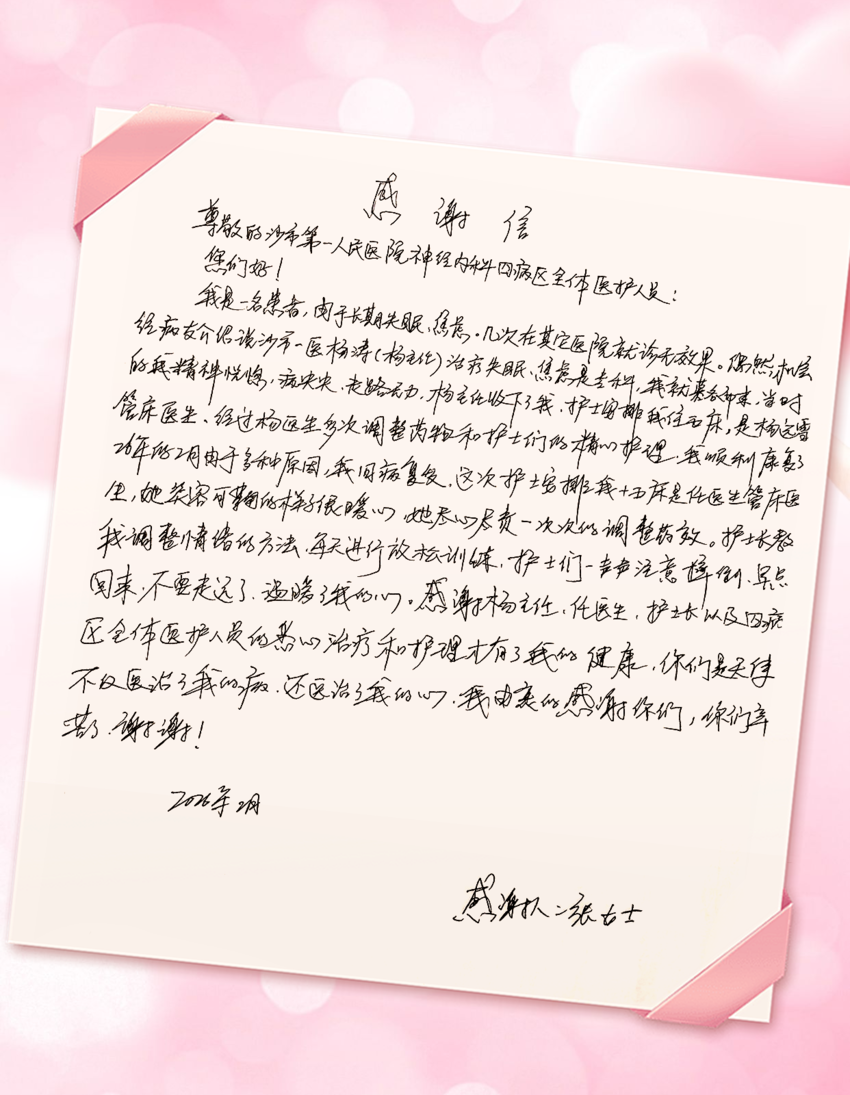 感谢信
尊敬的沙市第一人民医院神经内科四病区全体医护人员：
您们好！
我是一名患者，由于长期失眠、焦虑。几次在其它医院就诊无效果。偶然机会
经病友介绍说沙市一医杨涛（杨主任）治疗失眠、焦虑是专科，我就慕名而来，当时
的我精神恍惚，病怏怏，走路无力，杨主任收下了我，护士安排我住五床，是杨
管床医生、经过杨医生多次调整药物和护士们的精心护理，我顺利康复了
26年的2月由于多种原因，我旧病复发，这次护士安排我十五床是任医生管床医
生，她笑容可掬的样子很暖心，她尽心尽责一次次的调整药效。护士长教
我调整情绪的方法，每天进行放松训练，护士们一声声注意摔倒、早点
回来，不要走远了，温暖了我的心。感谢杨主任、任医生，护士长以及四病
区全体医护人员的悉心治疗和护理才有了我的健康，你们是天使
不仅医治了我的病，还医治了我的心，我由衷的感谢你们，你们辛
苦了，谢谢！
2026年2月
感谢人：张女士